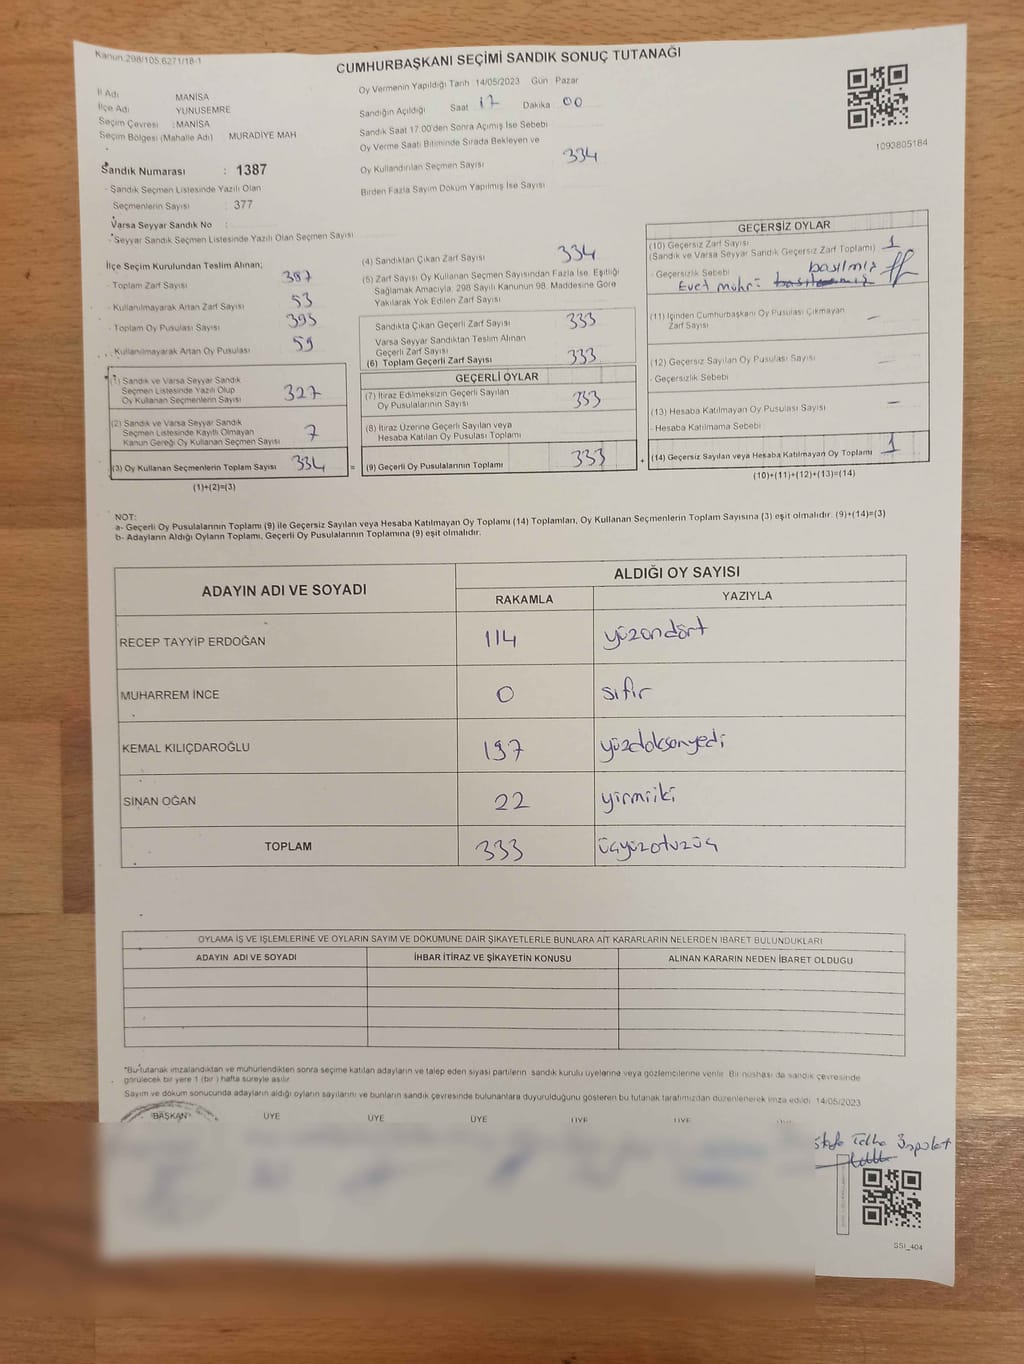 Kanun.298/105.6271/18-1
CUMHURBAŞKANI SEÇİMİ SANDIK SONUÇ TUTANAĞI
İl Adı MANİSA
İlçe Adı YUNUSEMRE
Seçim Çevresi : MANİSA
Seçim Bölgesi (Mahalle Adı) MURADİYE MAH
Sandık Numarası : 1387
- Sandık Seçmen Listesinde Yazılı Olan
Seçmenlerin Sayısı : 377
Varsa Seyyar Sandık No :
- Seyyar Sandık Seçmen Listesinde Yazılı Olan Seçmen Sayısı
Oy Vermenin Yapıldığı Tarih 14/05/2023 Gün Pazar
Sandığın Açıldığı Saat 17 Dakika 00
Sandık Saat 17.00'den Sonra Açılmış İse Sebebi
Oy Verme Saati Bitiminde Sırada Bekleyen ve
Oy Kullandırılan Seçmen Sayısı 334
Birden Fazla Sayım Döküm Yapılmış İse Sayısı
1093805184
İlçe Seçim Kurulundan Teslim Alınan;
- Toplam Zarf Sayısı 387
- Kullanılmayarak Artan Zarf Sayısı 53
- Toplam Oy Pusulası Sayısı 393
- Kullanılmayarak Artan Oy Pusulası 59
(1) Sandık ve Varsa Seyyar Sandık
Seçmen Listesinde Yazılı Olup
Oy Kullanan Seçmenlerin Sayısı 327
(2) Sandık ve Varsa Seyyar Sandık
Seçmen Listesinde Kayıtlı Olmayan
Kanun Gereği Oy Kullanan Seçmen Sayısı 7
(3) Oy Kullanan Seçmenlerin Toplam Sayısı 334 =
(1)+(2)=(3)
(4) Sandıktan Çıkan Zarf Sayısı 334
(5) Zarf Sayısı Oy Kullanan Seçmen Sayısından Fazla İse, Eşitliği
Sağlamak Amacıyla, 298 Sayılı Kanunun 98. Maddesine Göre
Yakılarak Yok Edilen Zarf Sayısı
Sandıkta Çıkan Geçerli Zarf Sayısı 333
Varsa Seyyar Sandıktan Teslim Alınan
Geçerli Zarf Sayısı
(6) Toplam Geçerli Zarf Sayısı 333
GEÇERLİ OYLAR
(7) İtiraz Edilmeksizin Geçerli Sayılan
Oy Pusulalarının Sayısı 333
(8) İtiraz Üzerine Geçerli Sayılan veya
Hesaba Katılan Oy Pusulası Toplamı
(9) Geçerli Oy Pusulalarının Toplamı 333 +
GEÇERSİZ OYLAR
(10) Geçersiz Zarf Sayısı
(Sandık ve Varsa Seyyar Sandık Geçersiz Zarf Toplamı) 1
- Geçersizlik Sebebi basılmış
Evet mührü
(11) İçinden Cumhurbaşkanı Oy Pusulası Çıkmayan
Zarf Sayısı —
(12) Geçersiz Sayılan Oy Pusulası Sayısı —
- Geçersizlik Sebebi
(13) Hesaba Katılmayan Oy Pusulası Sayısı —
- Hesaba Katılmama Sebebi
(14) Geçersiz Sayılan veya Hesaba Katılmayan Oy Toplamı 1
(10)+(11)+(12)+(13)=(14)
NOT:
a- Geçerli Oy Pusulalarının Toplamı (9) ile Geçersiz Sayılan veya Hesaba Katılmayan Oy Toplamı (14) Toplamları, Oy Kullanan Seçmenlerin Toplam Sayısına (3) eşit olmalıdır. (9)+(14)=(3)
b- Adayların Aldığı Oyların Toplamı, Geçerli Oy Pusulalarının Toplamına (9) eşit olmalıdır.
ADAYIN ADI VE SOYADI ALDIĞI OY SAYISI
RAKAMLA YAZIYLA
RECEP TAYYİP ERDOĞAN 114 yüzondört
MUHARREM İNCE 0 sıfır
KEMAL KILIÇDAROĞLU 197 yüzdoksanyedi
SİNAN OĞAN 22 yirmiiki
TOPLAM 333 üçyüzotuzüç
OYLAMA İŞ VE İŞLEMLERİNE VE OYLARIN SAYIM VE DÖKÜMÜNE DAİR ŞİKAYETLERLE BUNLARA AİT KARARLARIN NELERDEN İBARET BULUNDUKLARI
ADAYIN ADI VE SOYADI İHBAR İTİRAZ VE ŞİKAYETİN KONUSU ALINAN KARARIN NEDEN İBARET OLDUĞU
*Bu tutanak imzalandıktan ve mühürlendikten sonra seçime katılan adayların ve talep eden siyasi partilerin sandık kurulu üyelerine veya gözlemcilerine verilir. Bir nüshası da sandık çevresinde
görülecek bir yere 1 (bir) hafta süreyle asılır.
Sayım ve döküm sonucunda adayların aldığı oyların sayılarını ve bunların sandık çevresinde bulunanlara duyurulduğunu gösteren bu tutanak tarafımızdan düzenlenerek imza edildi. 14/05/2023
BAŞKAN ÜYE ÜYE ÜYE ÜYE ÜYE
SSI_404